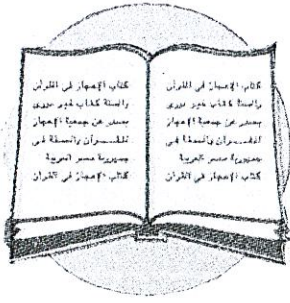 كتاب الإعجاز في القرآن
والسنة كتاب غير دورى
يصدر عن جمعية الإعجاز
للقرآن والسنة في
جمهورية مصر العربية
كتاب الإعجاز في القرآن
كتاب الإعجاز في القرآن
والسنة كتاب غير دورى
يصدر عن جمعية الإعجاز
للقرآن والسنة في
جمهورية مصر العربية
كتاب الإعجاز في القرآن